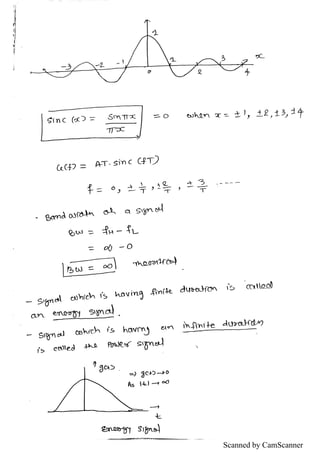 1
-3 -2 -1 0 1 2 3 4 x
sinc (x) = Sinπx / πx = 0 when x = ±1, ±2, ±3, ±4
G(f) = AT. sinc (fT)
f = 0, ± 1/T, ± 2/T, ± 3/T -----
- Band width of a signal
BW = fH - fL
= ∞ - 0
BW = ∞ Theoretical
- Signal which is having finite duration is called
an energy signal.
- Signal which is having an infinite duration
is called the Power signal
g(t)
=> g(t)→0
As |t| → ∞
t
Energy Signal
Scanned by CamScanner